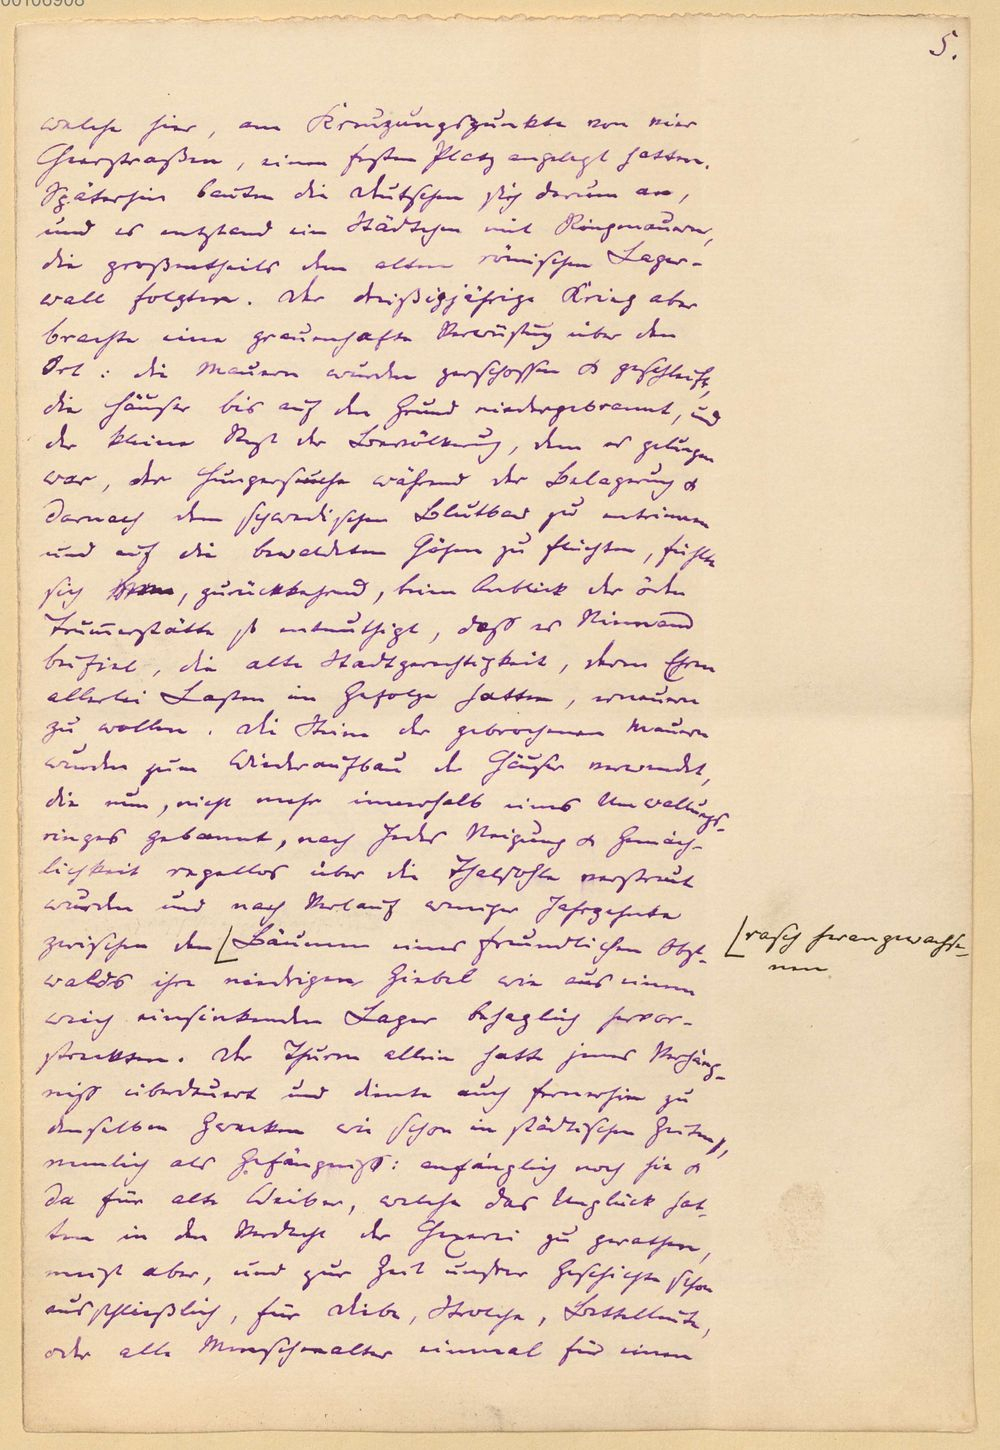 00106908
5.
welche hier, am Kreuzungspunkte von vier
Heerstraßen, einen festen Platz angelegt hatten.
Späterhin bauten die Deutschen sich darum an,
und es entstand ein Städtchen mit Ringmauern,
die großentheils dem alten römischen Lager-
wall folgten. Der dreißigjährige Krieg aber
brachte eine grauenhafte Verwüstung über den
Ort: die Mauern wurden zerschossen & geschleift,
die Häuser bis auf den Grund niedergebrannt, und
der kleine Rest der Bevölkerung, dem es gelungen
war, der Hungerseuche während der Belagerung &
darnach dem schwedischen Blutbad zu entrinnen
und auf die bewaldeten Höhen zu flüchten, fühlte
sich, zurückkehrend, beim Anblick der öden
Trümmerstätte so entmuthigt, daß es Niemand
beifiel, die alte Stadtgerechtigkeit, deren Ehren
allerlei Lasten im Gefolge hatten, erneuern
zu wollen. Die Steine der gebrochenen Mauern
wurden zum Wiederaufbau der Häuser verwendet,
die nun, nicht mehr innerhalb eines Umwallungs-
ringes gebannt, nach Jedes Neigung & Gemäch-
lichkeit regellos über die Thalsohle verstreut
wurden und nach Verlauf weniger Jahrzehnte
zwischen den [Bäumen eines freundlichen Obst-
[rasch herangewachse-
nen
walds ihre niedrigen Giebel wie aus einem
weich einsinkenden Lager behaglich hervor-
streckten. Der Thurm allein hatte jenes Verhäng-
niß überdauert und diente auch fernerhin zu
denselben Zwecken wie schon in städtischen Zeiten,
nemlich als Gefängniß: anfänglich noch hie &
da für alte Weiber, welche das Unglück hat-
ten in den Verdacht der Hexerei zu gerathen,
meist aber, und zur Zeit unsrer Geschichte schon
ausschließlich, für Diebe, Strolche, Bettelleute,
oder alle Menschenalter einmal für einen